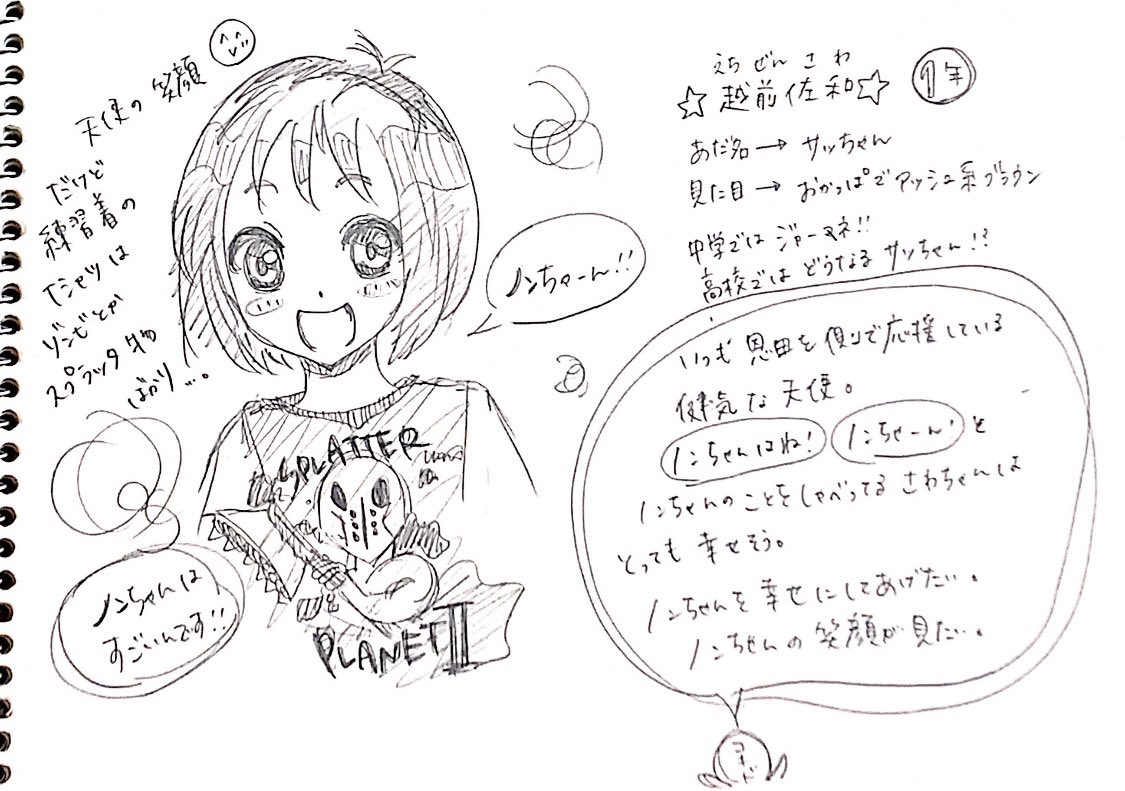 天使の笑顔
だけど
練習着の
Tシャツは
ゾンビとか
スプラッタ物
ばかり…。
ノンちゃーん!!
SPLATTER
PLANET II
ノンちゃんは
すごいんです!!
えちぜん さわ
☆越前佐和☆ 1年
あだ名→ サッちゃん
見た目→ おかっぱでアッシュ系ブラウン
中学では ジャーマネ!!
高校では どうなる サッちゃん!?
いつも 恩田を 側で応援している
健気な天使。
ノンちゃんはね! ノンちゃーん! と
ノンちゃんのことをしゃべってる さわちゃんは
とっても 幸せそう。
ノンちゃんを 幸せにしてあげたい。
ノンちゃんの 笑顔が 見たい。